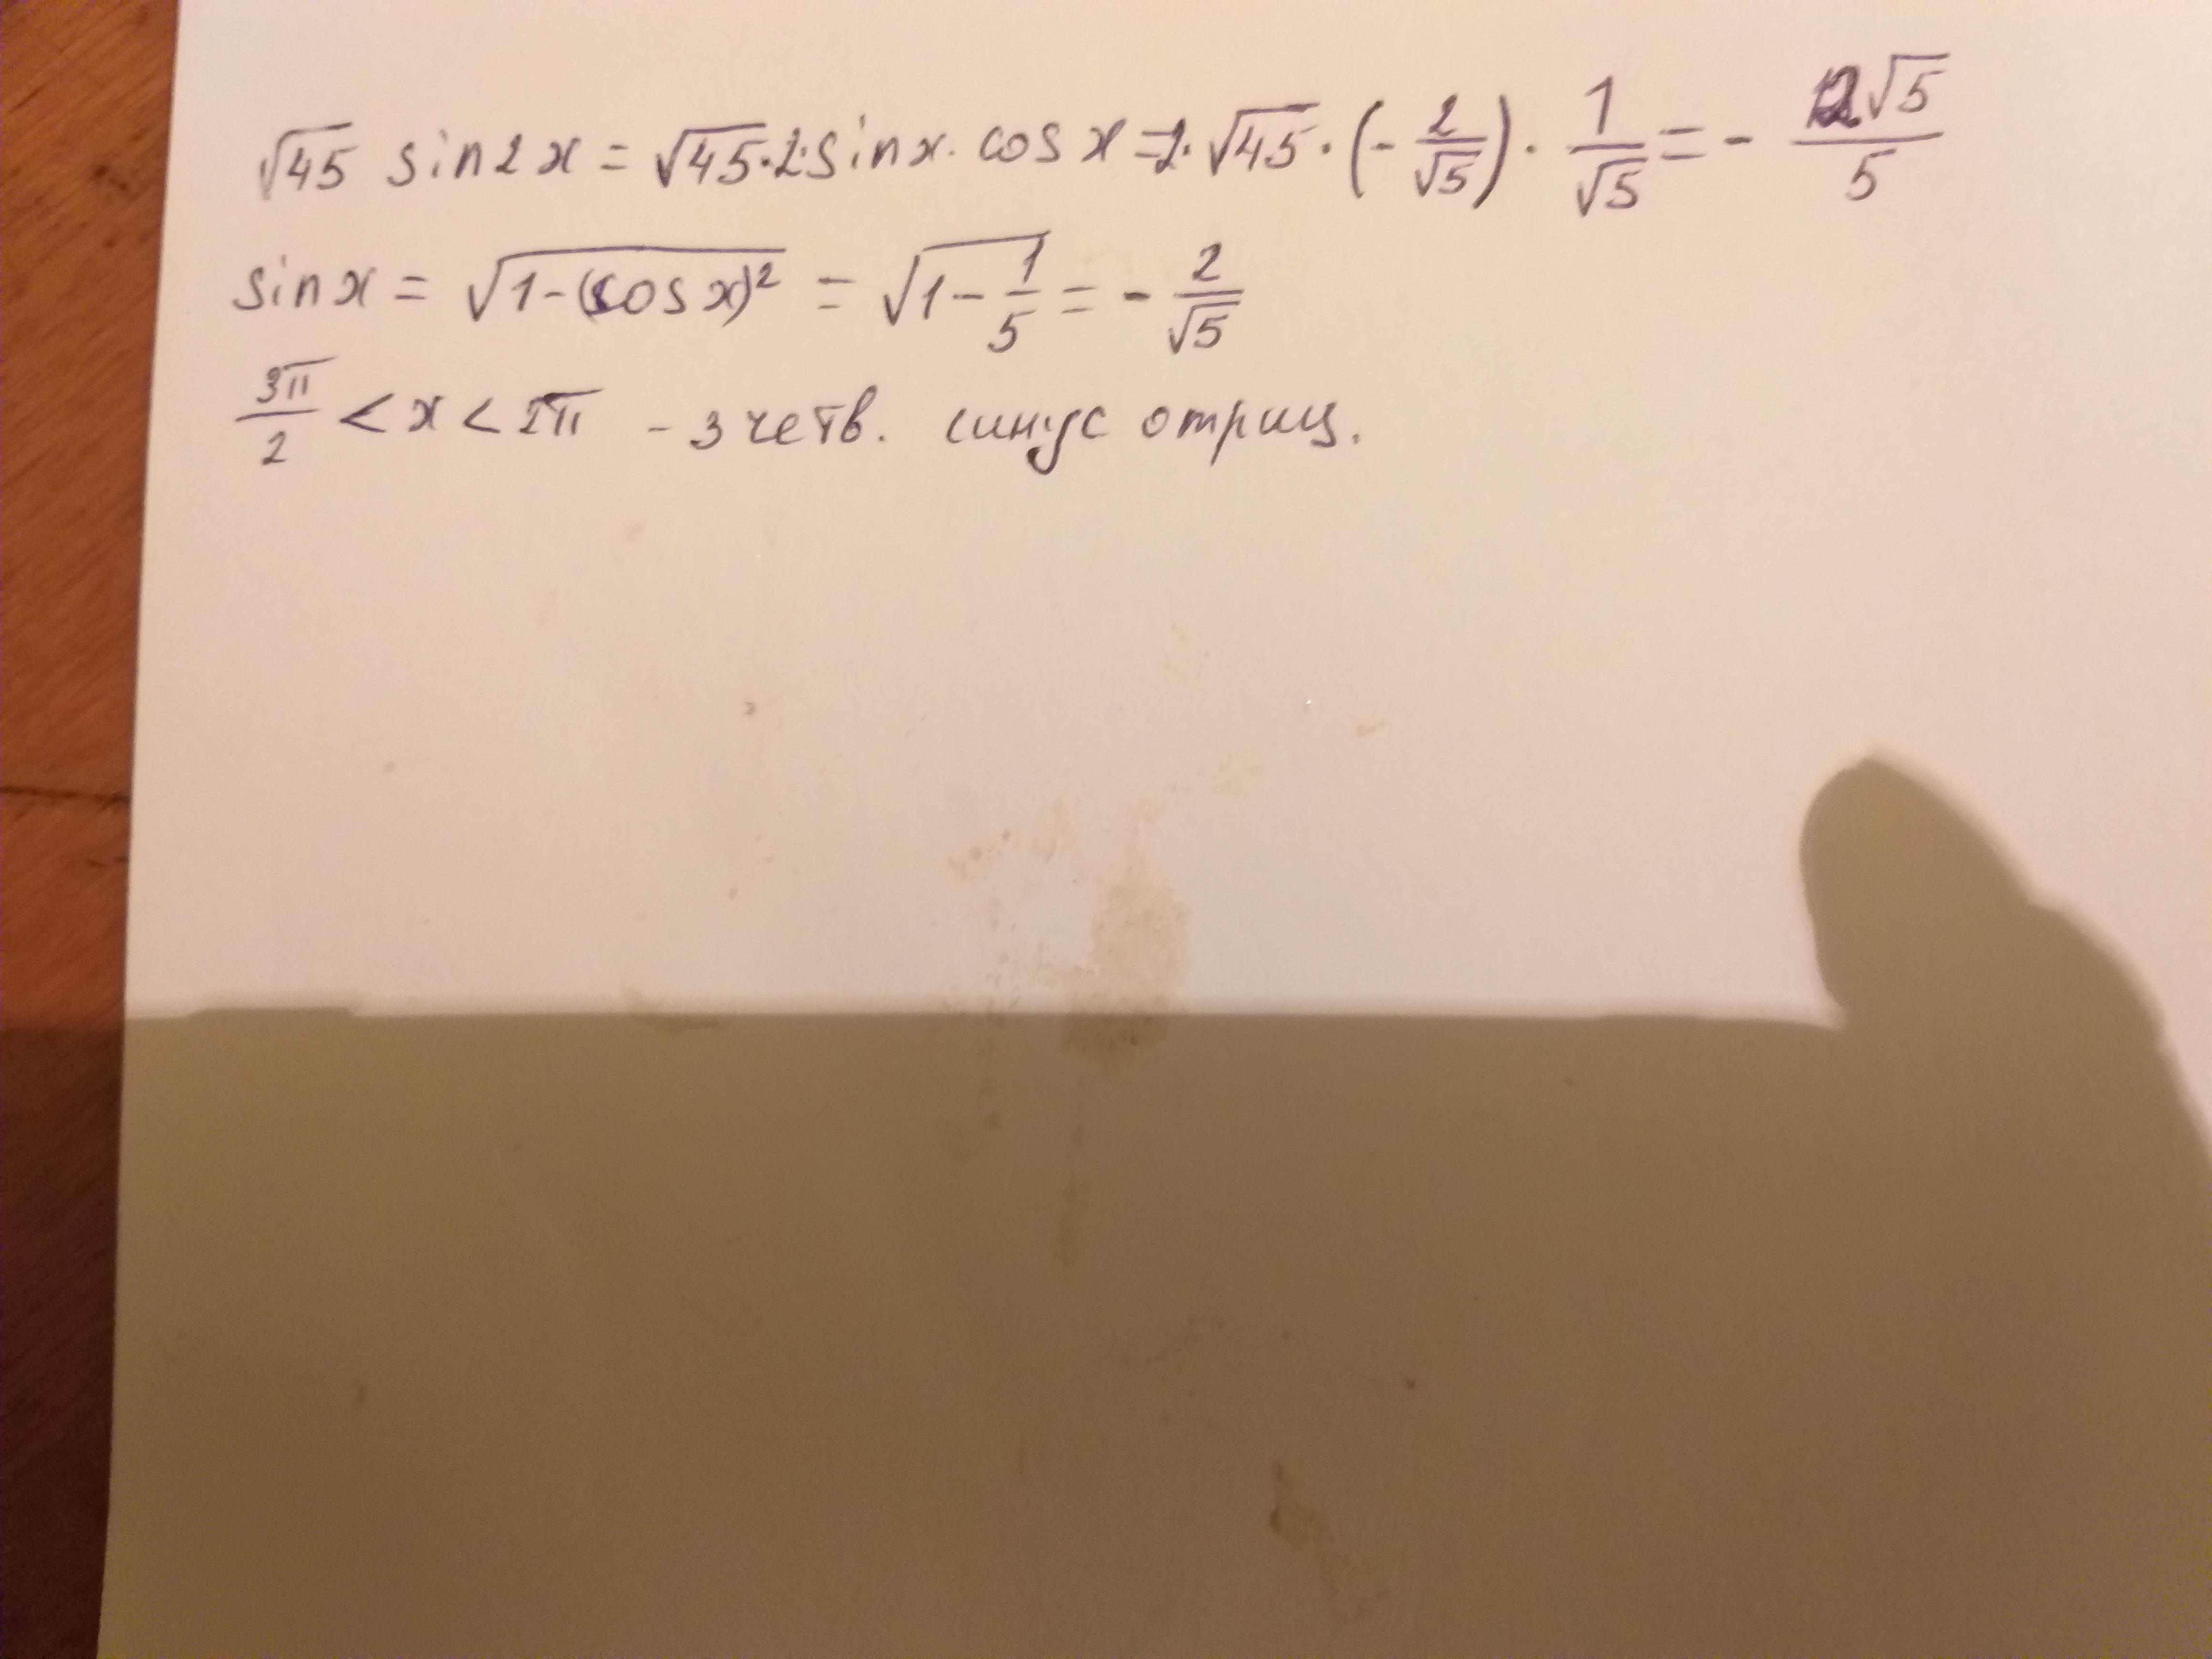 √45 sin2x = √45·2·sinx·cosx=2·√45·(-2/√5)·1/√5=-12√5/5
sinx = √1-(cosx)² = √1-1/5 = -2/√5
3π/2 < x < 2π - 3 четв. синус отриц.